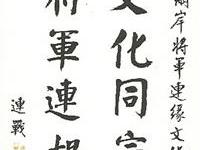 兩岸將軍連緣文化
文化同
將軍連
連戰